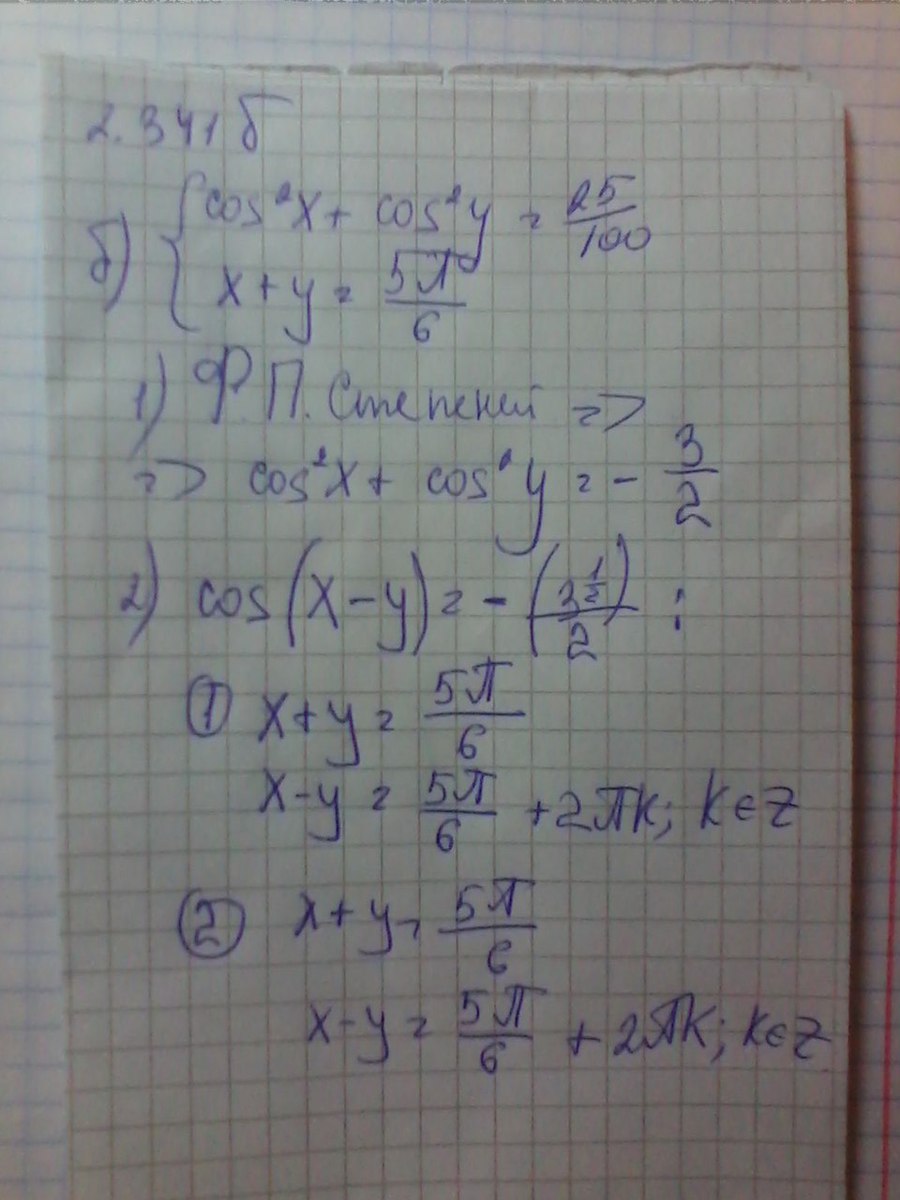 2.341б
б) { cos²x + cos²y = 25/100
x + y = 5π/6
1) Ф.П. Степеней =>
=> cos²x + cos²y = - 3/2
2) cos(x-y) = - (3^(1/2))/2 :
① x+y = 5π/6
x-y = 5π/6 + 2πk; k∈Z
② x+y = 5π/6
x-y = 5π/6 + 2πk; k∈Z